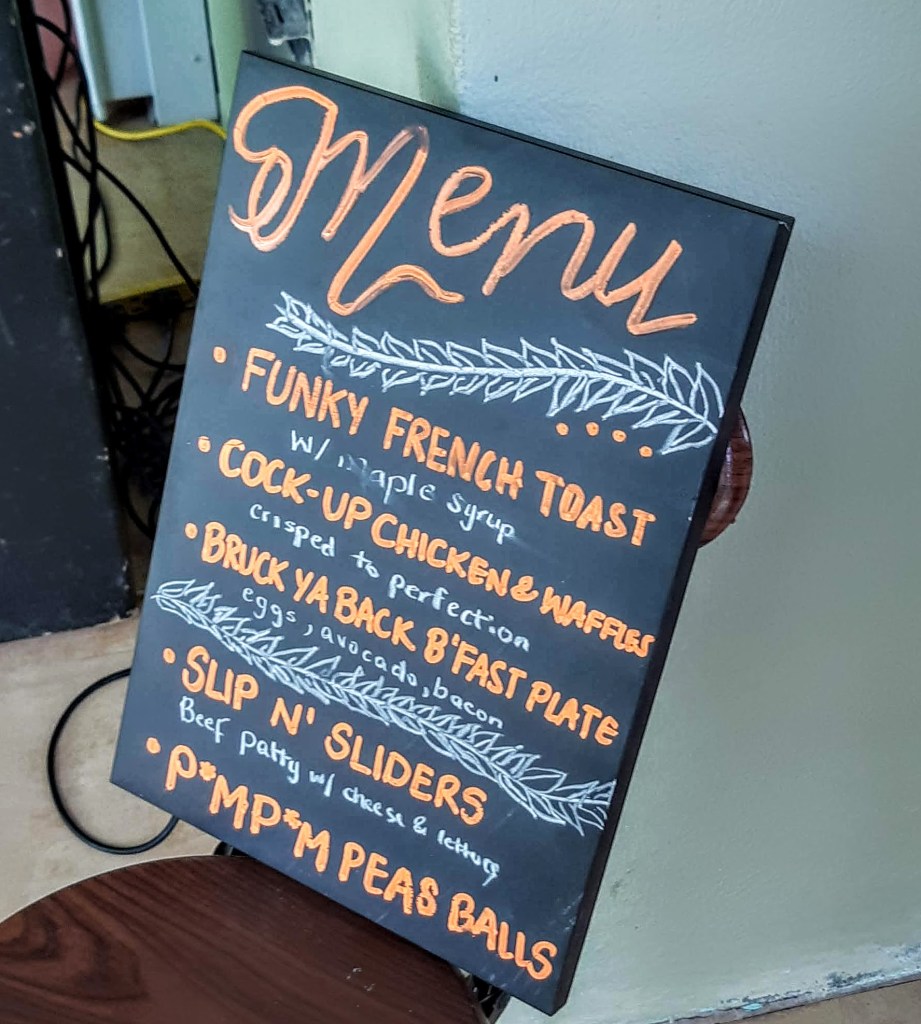 Menu
• FUNKY FRENCH TOAST
w/ maple syrup
• COCK-UP CHICKEN & WAFFLES
crisped to perfection
• BRUCK YA BACK B'FAST PLATE
eggs, avocado, bacon
• SLIP N' SLIDERS
Beef patty w/ cheese & lettuce
• P*MP*M PEAS BALLS